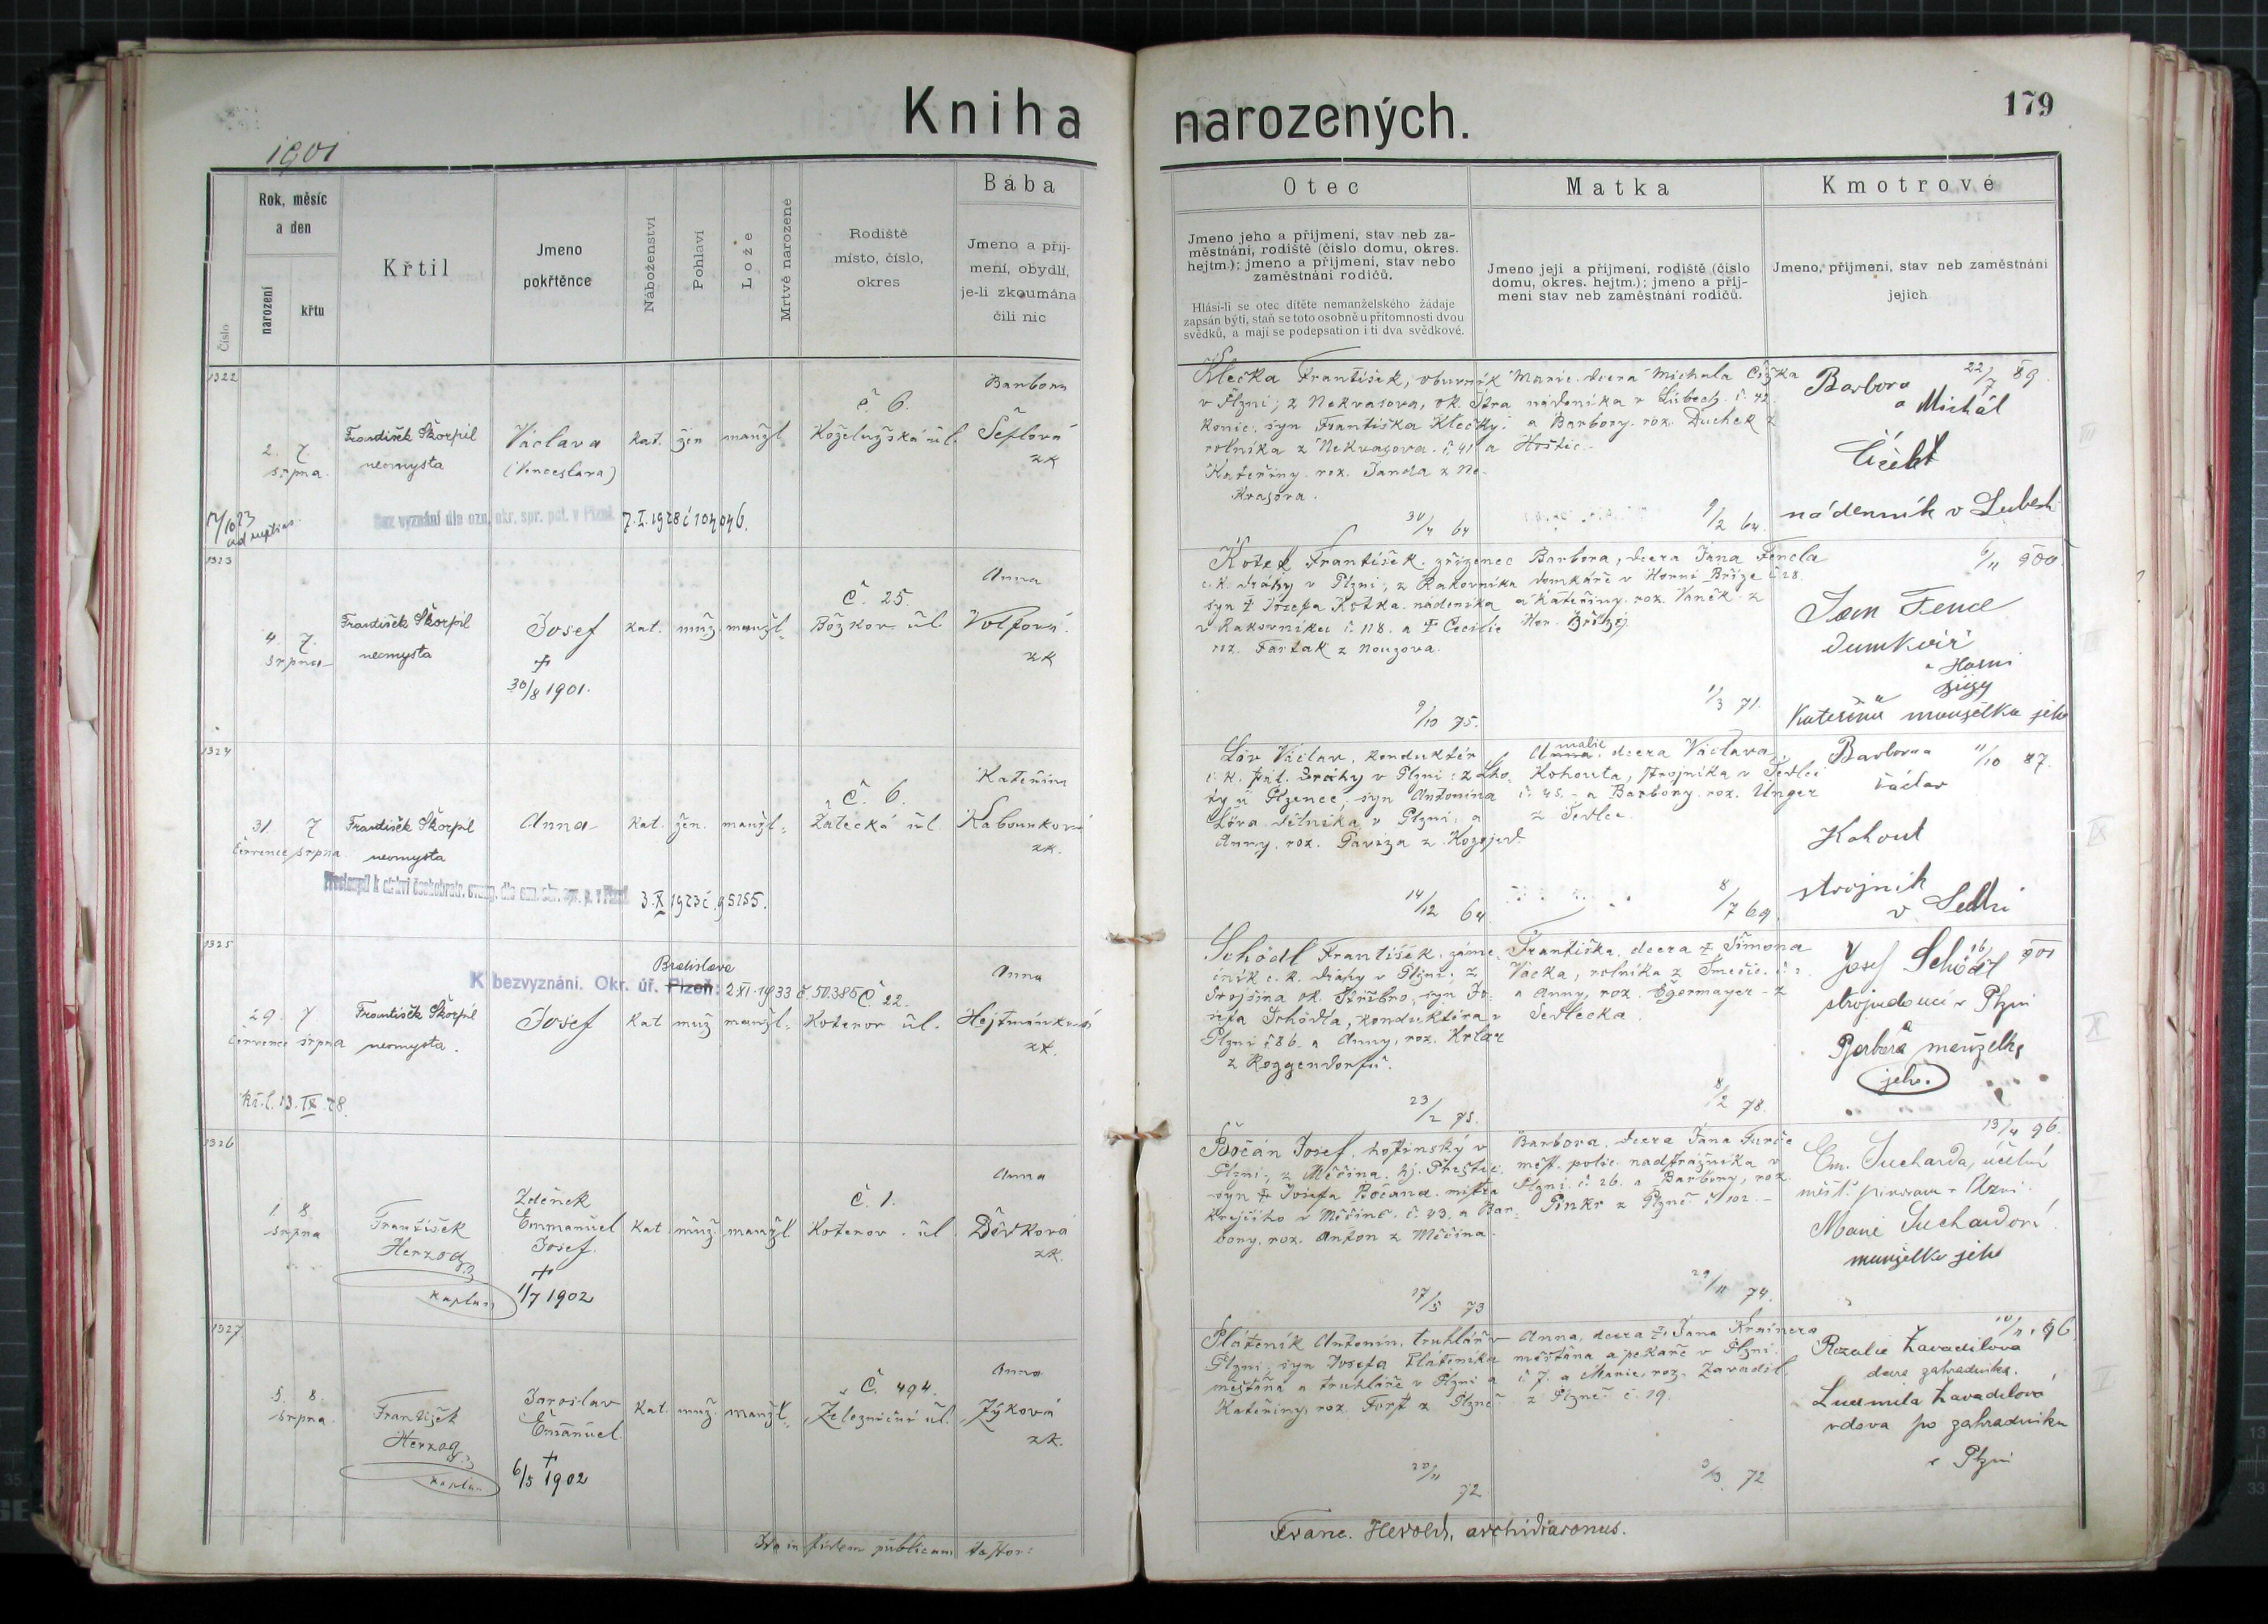 Kniha narozených.
179
1901
Číslo
Rok, měsíc
a den
narození
křtu
Křtil
Jmeno
pokřtěnce
Náboženství
Pohlaví
Lože
Mrtvě narozené
Rodiště
místo, číslo,
okres
Bába
Jmeno a příj-
mení, obydlí,
je-li zkoumána
čili nic
Otec
Jmeno jeho a příjmení, stav neb za-
městnání, rodiště (číslo domu, okres.
hejtm.); jmeno a příjmení, stav nebo
zaměstnání rodičů.
Hlásí-li se otec dítěte nemanželského žádaje
zapsán býti, staň se toto osobně u přítomnosti dvou
svědků, a mají se podepsati on i ti dva svědkové.
Matka
Jmeno její a příjmení, rodiště (číslo
domu, okres. hejtm.); jmeno a příj-
mení stav neb zaměstnání rodičů.
Kmotrové
Jmeno, příjmení, stav neb zaměstnání
jejich
1322
2. 7.
srpna.
František Škorpil
neomysta
Václava
(Venceslava)
kat. žen manžl.
č. 6.
Koželužská ul.
Barbora
Šeflová
zk
Bez vyznání dle ozn. okr. spr. pol. v Plzni. 7. I. 1928 č 104046.
Klečka František, obuvník
v Plzni; z Nekvasova, ok. Stra
konic, syn Františka Klečky,
rolníka z Nekvasova č 41 a
Kateřiny roz. Janda z Ne-
kvasova.
30/4 64
Marie dcera Michala Čížka
nádeníka v Lubech č. 42.
a Barbory roz. Duchek z
Hoštic.
9/2 64.
Barbora 22/7 89.
a Michal
nádenník v Lubech
1323
4. 7.
srpna
František Škorpil
neomysta
Josef
+
30/8 1901.
kat. muž. manžl.
Č. 25.
Božkov. ul.
Anna
Volfová.
zk
František zřízenec
c. k. dráhy v Plzni; z Rakovníka
syn + Josefa nádeníka
v Rakovníku č. 118. a + Cecilie
roz. z Nouzova.
9/10 75.
Barbora, dcera Jana Fencla
domkáře v Horní Bříze č 28.
a Kateřiny roz. Vaněk z
Hor. Břízy.
1/3 71.
6/11 900
Jan Fencl
domkář
z Horní
Břízy
Kateřina manželka jeho
1324
31. 7
července srpna
František Škorpil
neomysta
Anna
kat. žen. manžl.
Č. 6.
Žatecká ul.
Kateřina
Kabourková
zk.
3. X 1923 č. 95255.
Löv Václav, konduktér
c. k. stát. dráhy v Plzni: z Lho-
ty u Plzence, syn Antonína
Löva dělníka v Plzni, a
Anny, roz. z Kozojed.
14/12 64
Amalie dcera Václava
Kohouta, strojníka v Sedlci
č. 45. a Barbory roz. Unger
z Sedlce.
8/7 69.
Barbora 11/10 87.
Václav
Kohout
strojník
v Sedlci
1325
K bezvyznání. Okr. úř. Plzeň: Bratislava 2 XI. 1933 č. 50.385
29. 7
července srpna
František Škorpil
neomysta.
Josef
kat muž manžl.
Č 22.
Koterov. ul.
Anna
Hejtmánková
zk.
Kř. l. 13. IX. 28.
Schödl František, záme-
čník c. k. dráhy v Plzni; z
ok. Stříbro, syn Jo-
sefa Schödla, konduktéra v
Plzni č 86. a Anny, roz.
z Roggendorfu.
23/2 75.
Františka, dcera + Šimona
Vacka, rolníka z
a Anny, roz. z
Sedlecka.
8/2 78.
Josef Schödl 16/ 901
strojvedoucí v Plzni
a
Barbora manželka
jeho.
1326
1. 8.
srpna
František
Herzog
kaplan
Zdeněk
Emmanuel
Josef.
+
1/7 1902
kat muž. manžl.
Č. 1.
Koterov. ul.
Anna
Dědková
zk.
Bočán Josef, hostinský v
Plzni; z Měčína, hj. Přeštic.
syn + Josefa Bočana, mistra
krejčího v Měčíně č. 43. a Bar-
bory, roz. Anton z Měčína.
17/5 73
Barbora, dcera Jana
měst. polic. nadstrážníka v
Plzni č 26. a Barbory, roz.
Pinkr z Plzně č 102.
29/11 74.
13/4 96.
Em. Sucharda, účetní
měst. pivovaru v Plzni.
Marie Suchardová
manželka jeho
1327
5. 8.
srpna.
František
Herzog
kaplan
Jaroslav
Emanuel.
+
6/5 1902
kat. muž. manžl.
Č. 494.
Železniční ul.
Anna
Zýková
zk.
Pláteník Antonín, truhlář v
Plzni, syn Josefa Pláteníka
měšťana a truhláře v Plzni a
Kateřiny, roz. Forst z Plzně.
20/11
72
Anna, dcera + Jana
měšťana a pekaře v Plzni
č 7. a Marie, roz. Zavadil
z Plzně č. 19.
3/3. 72
10/11 96.
Rozalie Zavadilova
dcera zahradníka.
Ludmila Zavadilová
vdova po zahradníku
v Plzni
Ita in fidem publicam testor:
Franc. Herold, archidiaconus.